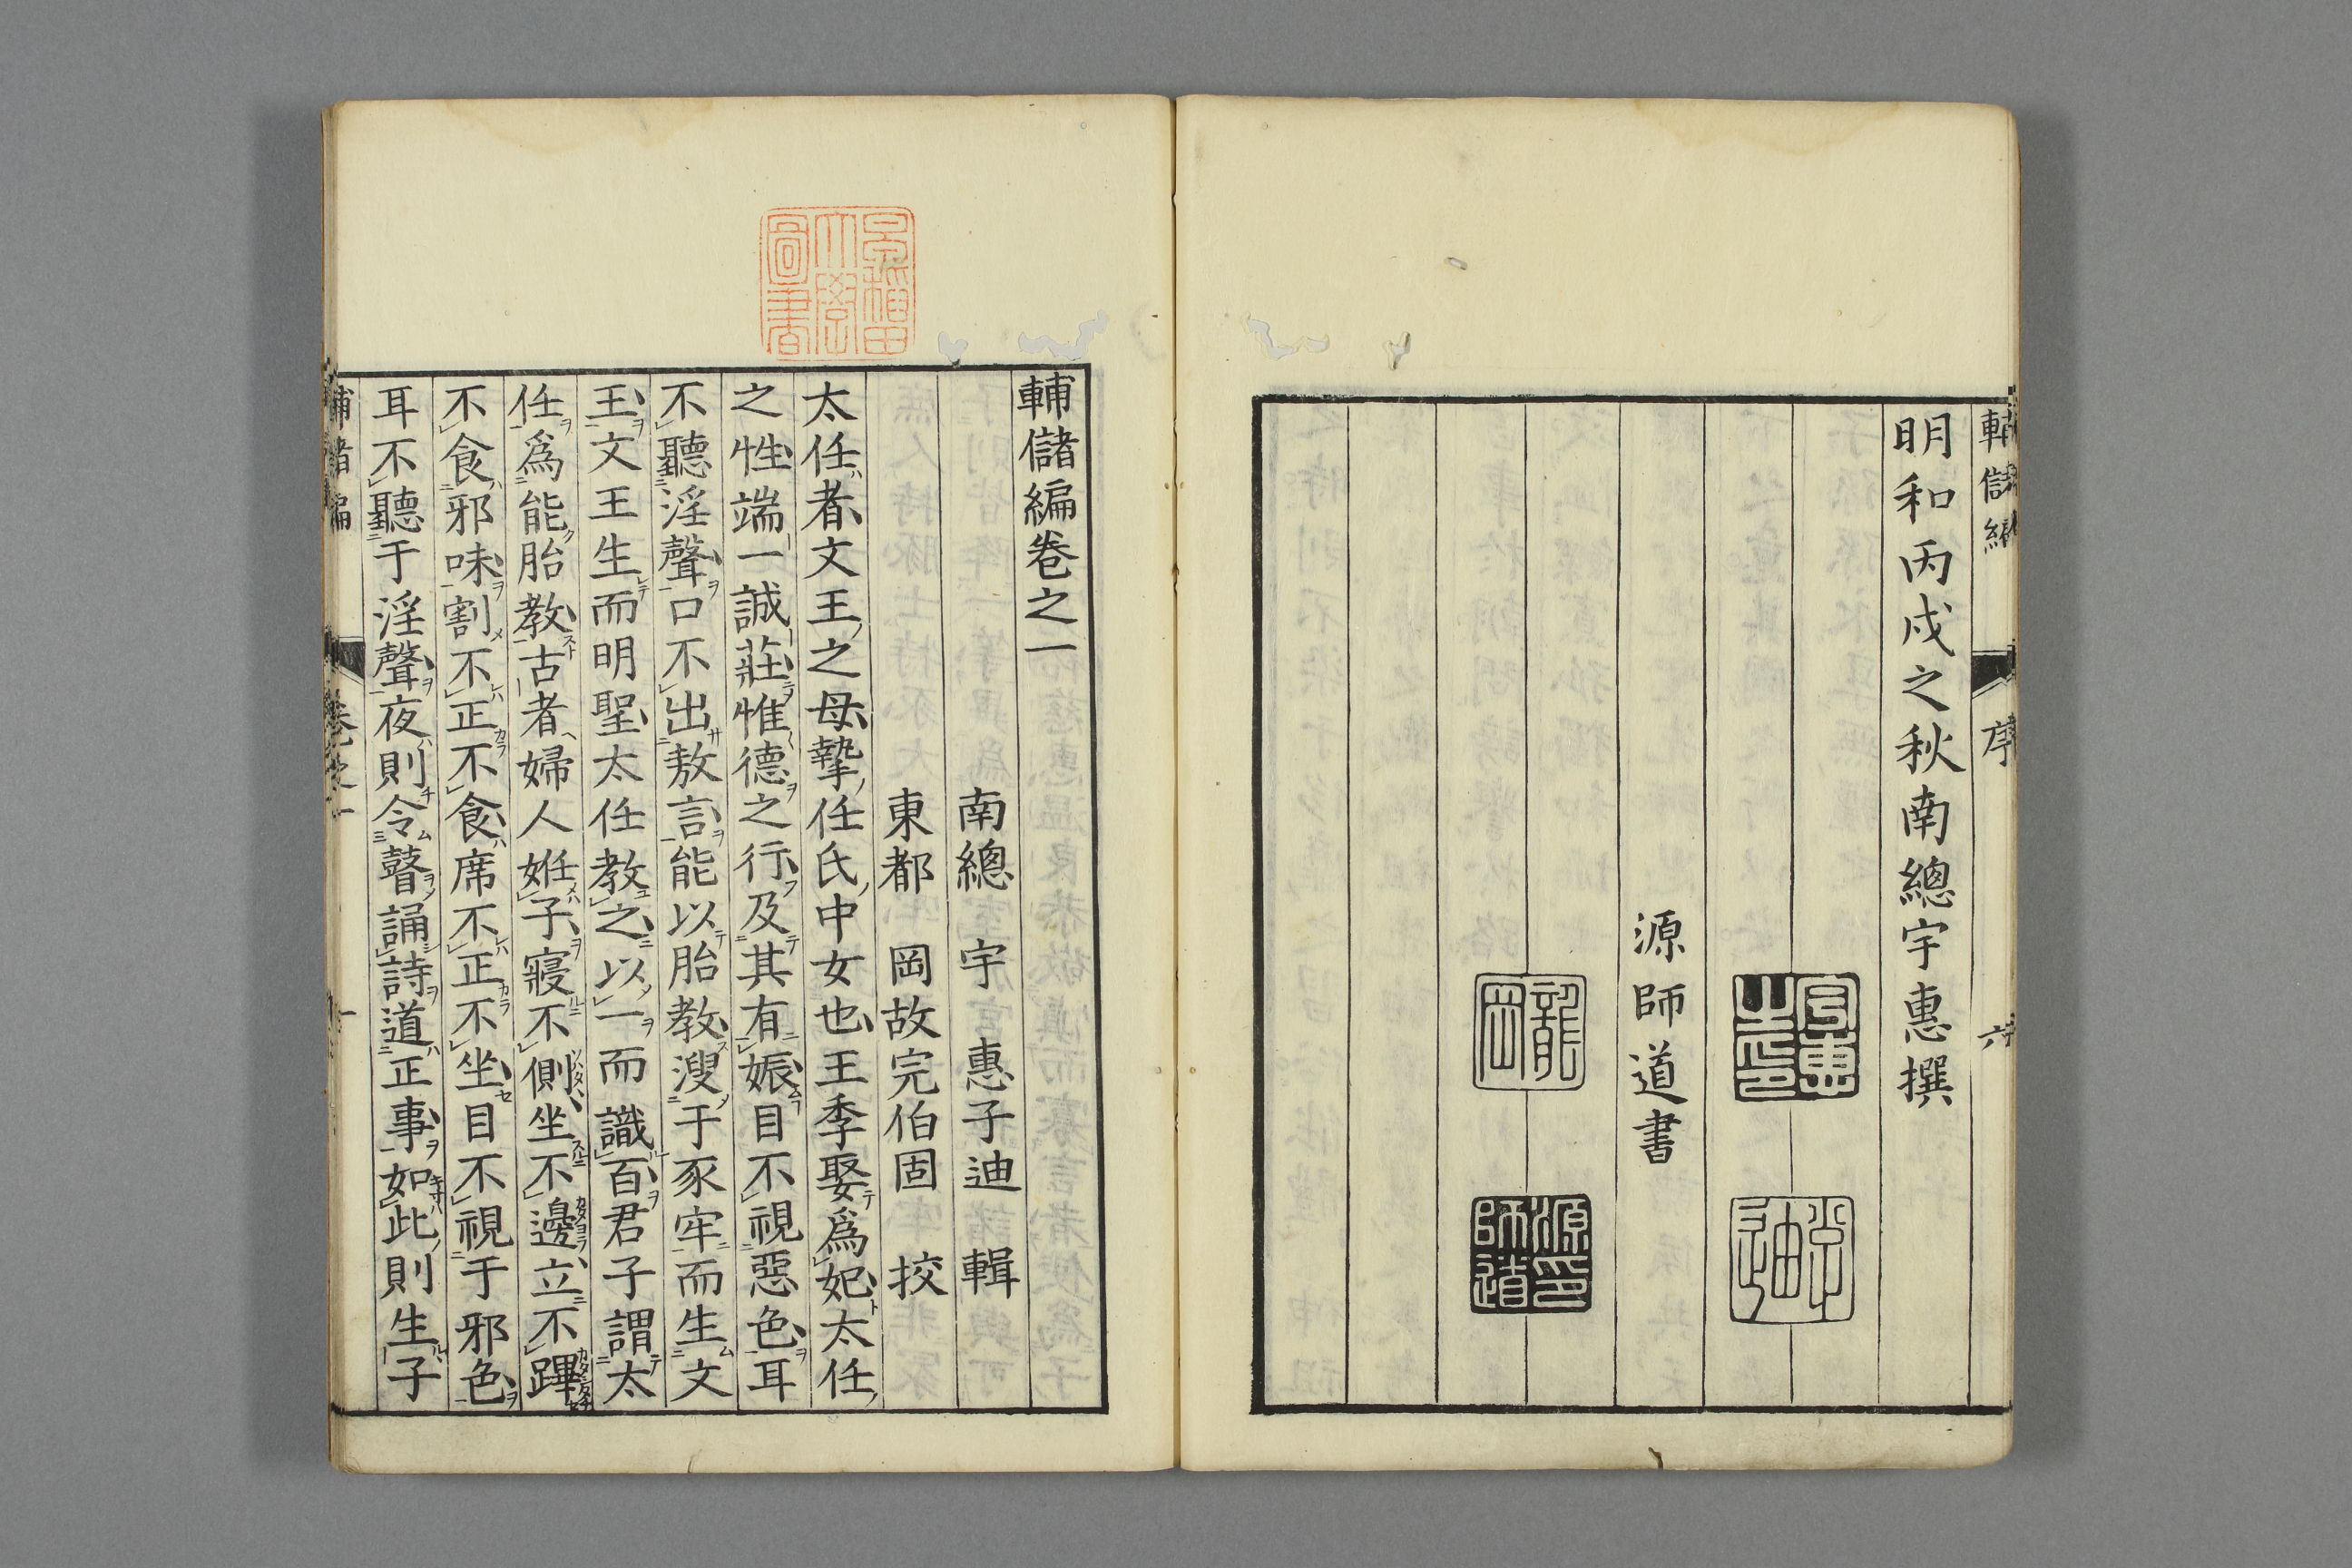 輔儲編
序
六
明和丙戌之秋南總宇惠撰
宇惠之印
子迪
源師道書
龍岡
源印師道
早稻田大學圖書
輔儲編卷之一
南總 宇 惠子迪 輯
東都 岡故完伯固 挍
太任者文王之母摯任氏中女也王季娶爲妃太任
之性端一誠莊惟德之行及其有娠目不視惡色耳
不聽淫聲口不出敖言能以胎教溲于豕牢而生文
王文王生而明聖太任教之以一而識百君子謂太
任爲能胎教古者婦人妊子寢不側坐不邊立不蹕
不食邪味割不正不食席不正不坐目不視于邪色
耳不聽于淫聲夜則令瞽誦詩道正事如此則生子
輔儲編
卷之一
一